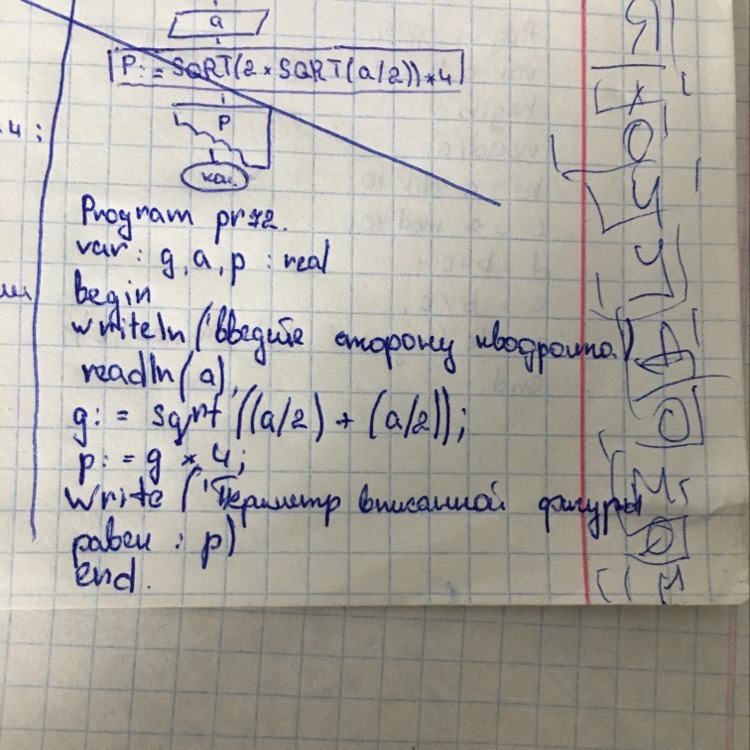 a
P:=SQRT(2*SQRT(a/2))*4
P
кон.
Program pr72.
var: g, a, p : real
begin
writeln ('введите сторону квадрата.')
readln (a),
g: = sqrt ((a/2) + (a/2));
p: = g * 4;
write ('Периметр вписанной фигуры
равен : p)
end.